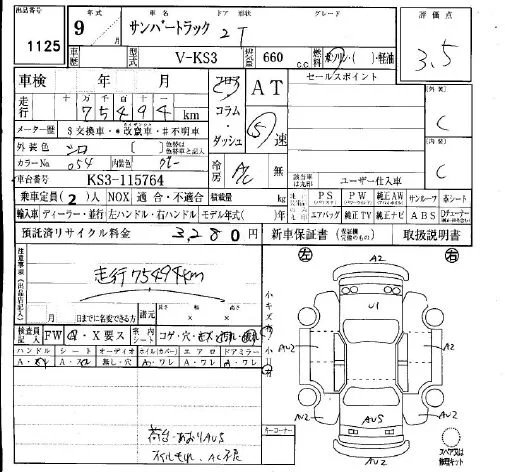 出品番号 1125
年式 9年 / 月
サンバートラック 2T
ドア 形状 グレード
車歴 型式 V-KS3 排気量 660 c.c 燃料 ガソリン・( )・軽油
評価点 3.5
車検 年 月
走行 十万千百十 75494 km
フロア コラム・ダッシュ
AT ⑤速
セールスポイント
メーター歴 $交換車・*改ざん車・#不明車
外装色 シロ 色替は色替車と記入
カラーNo. 054 内装色 グレー
冷房 A/C 無
ユーザー仕入車
[外装] C
[内装] C
車台番号 KS3-115764
乗車定員(2)人 NOX 適合・不適合 積載量 kg
PS PW 純正AW サンルーフ 革シート
輸入車 ディーラー・並行 左ハンドル・右ハンドル モデル年式( )年
エアバッグ 純正TV 純正ナビ ABS
預託済リサイクル料金 3,280円
新車保証書 取扱説明書
注意事項(出品店記入)
走行75,494km
月 日までに名変できる方 諸元 長さ 幅 高さ
検査員記入 FW ・X要ス 車内シート コゲ・穴・キズ・汚れ・破れ
ハンドル シート オーディオ ホイル(カバー) エアロ ドアミラー
A・スレ A・スレ 無し・穴 A・ワレ A・ワレ A・ワレ
荷台・あおりAU5
オイルもれ、AC不良
キーコーナー
左 右
A2
U1
AU2 A2
AU2 A2
AU2 AU5 AU2
AU2
スペア又は修理キット